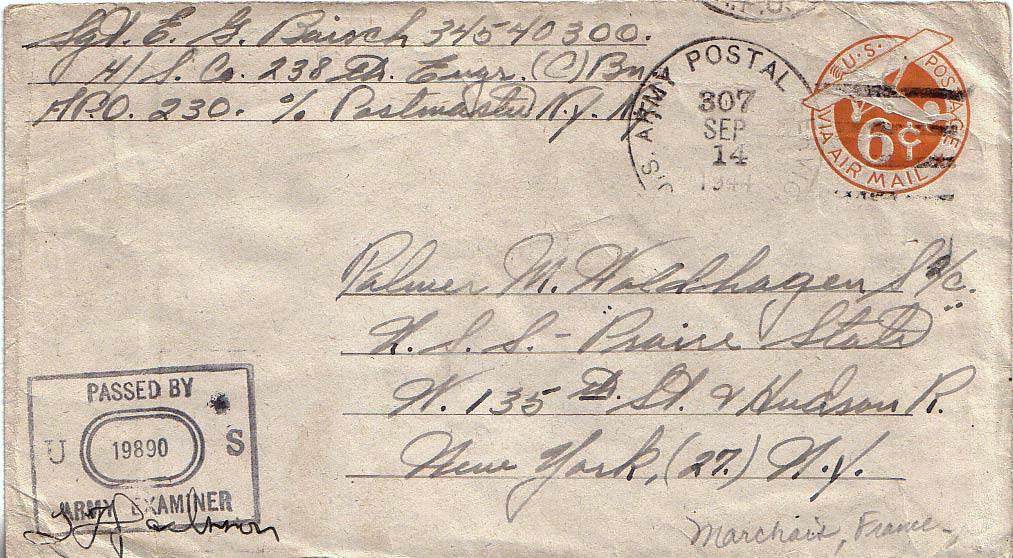 Sgt. E. G. Baisch 34540300.
H/S. Co. 238 th. Engr. (C) Bn
A.P.O. 230. % Postmaster N.Y. N.
A.P.O.
U.S. ARMY POSTAL
307
SEP
14
1944
U.S. POSTAGE
6¢
VIA AIR MAIL
Palmer M. Waldhagen S 2/c.
U.S.S. - "Praire State"
W. 135 th. St. & Hudson R.
New York, (27.) N.Y.
PASSED BY
U 19890 S
ARMY EXAMINER
Marchais, France